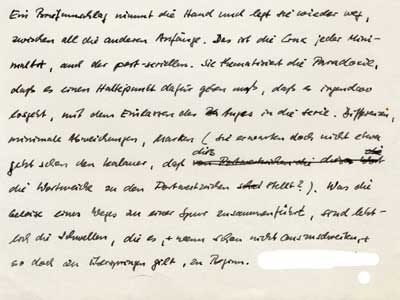 Ein Briefumschlag nimmt die Hand und legt sie wieder weg,
zwischen all die anderen Anfänge. Das ist die Crux jeder Mini-
malität, auch der post-seriellen. Sie thematisiert die Paradoxie,
daß es einen Haltepunkt dafür geben muß, daß es irgendwo
losgeht, mit dem Einkerben des Auges in die Serie. Differenzen,
minimale Abweichungen, Marken (sie erwarten doch nicht etwa
jetzt schon den Kalauer, daß dies die
die Wortweiche zu den Postwertzeichen stellt?). Was die
eines Weges zu einer Spur zusammenführt, sind letzt-
lich die Schwellen, die es, wenn schon nicht auszuschreiten,
so doch zu überspringen gilt, zu Beginn.